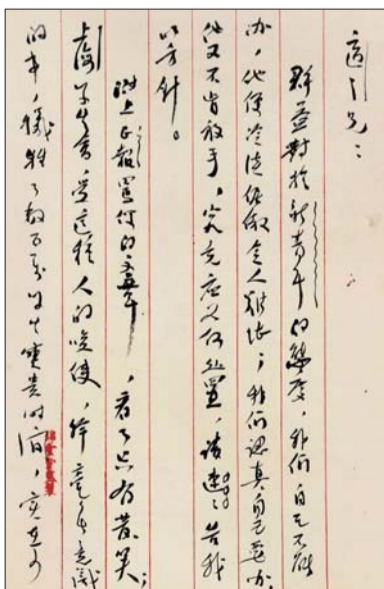 適之兄：
群益對於新青年的態度，我們自己不能
办，他便冷淡倨傲令人難堪；我們認真自己要办，
他又不肯放手，究竟应如何処置，請速速告我
以方針。
附上正報罵你的文章，看了只有發笑；
上海学生會，受這種人的唆使，幹毫無意識
的事，犧牲了数百万学生寶貴时间，实在可